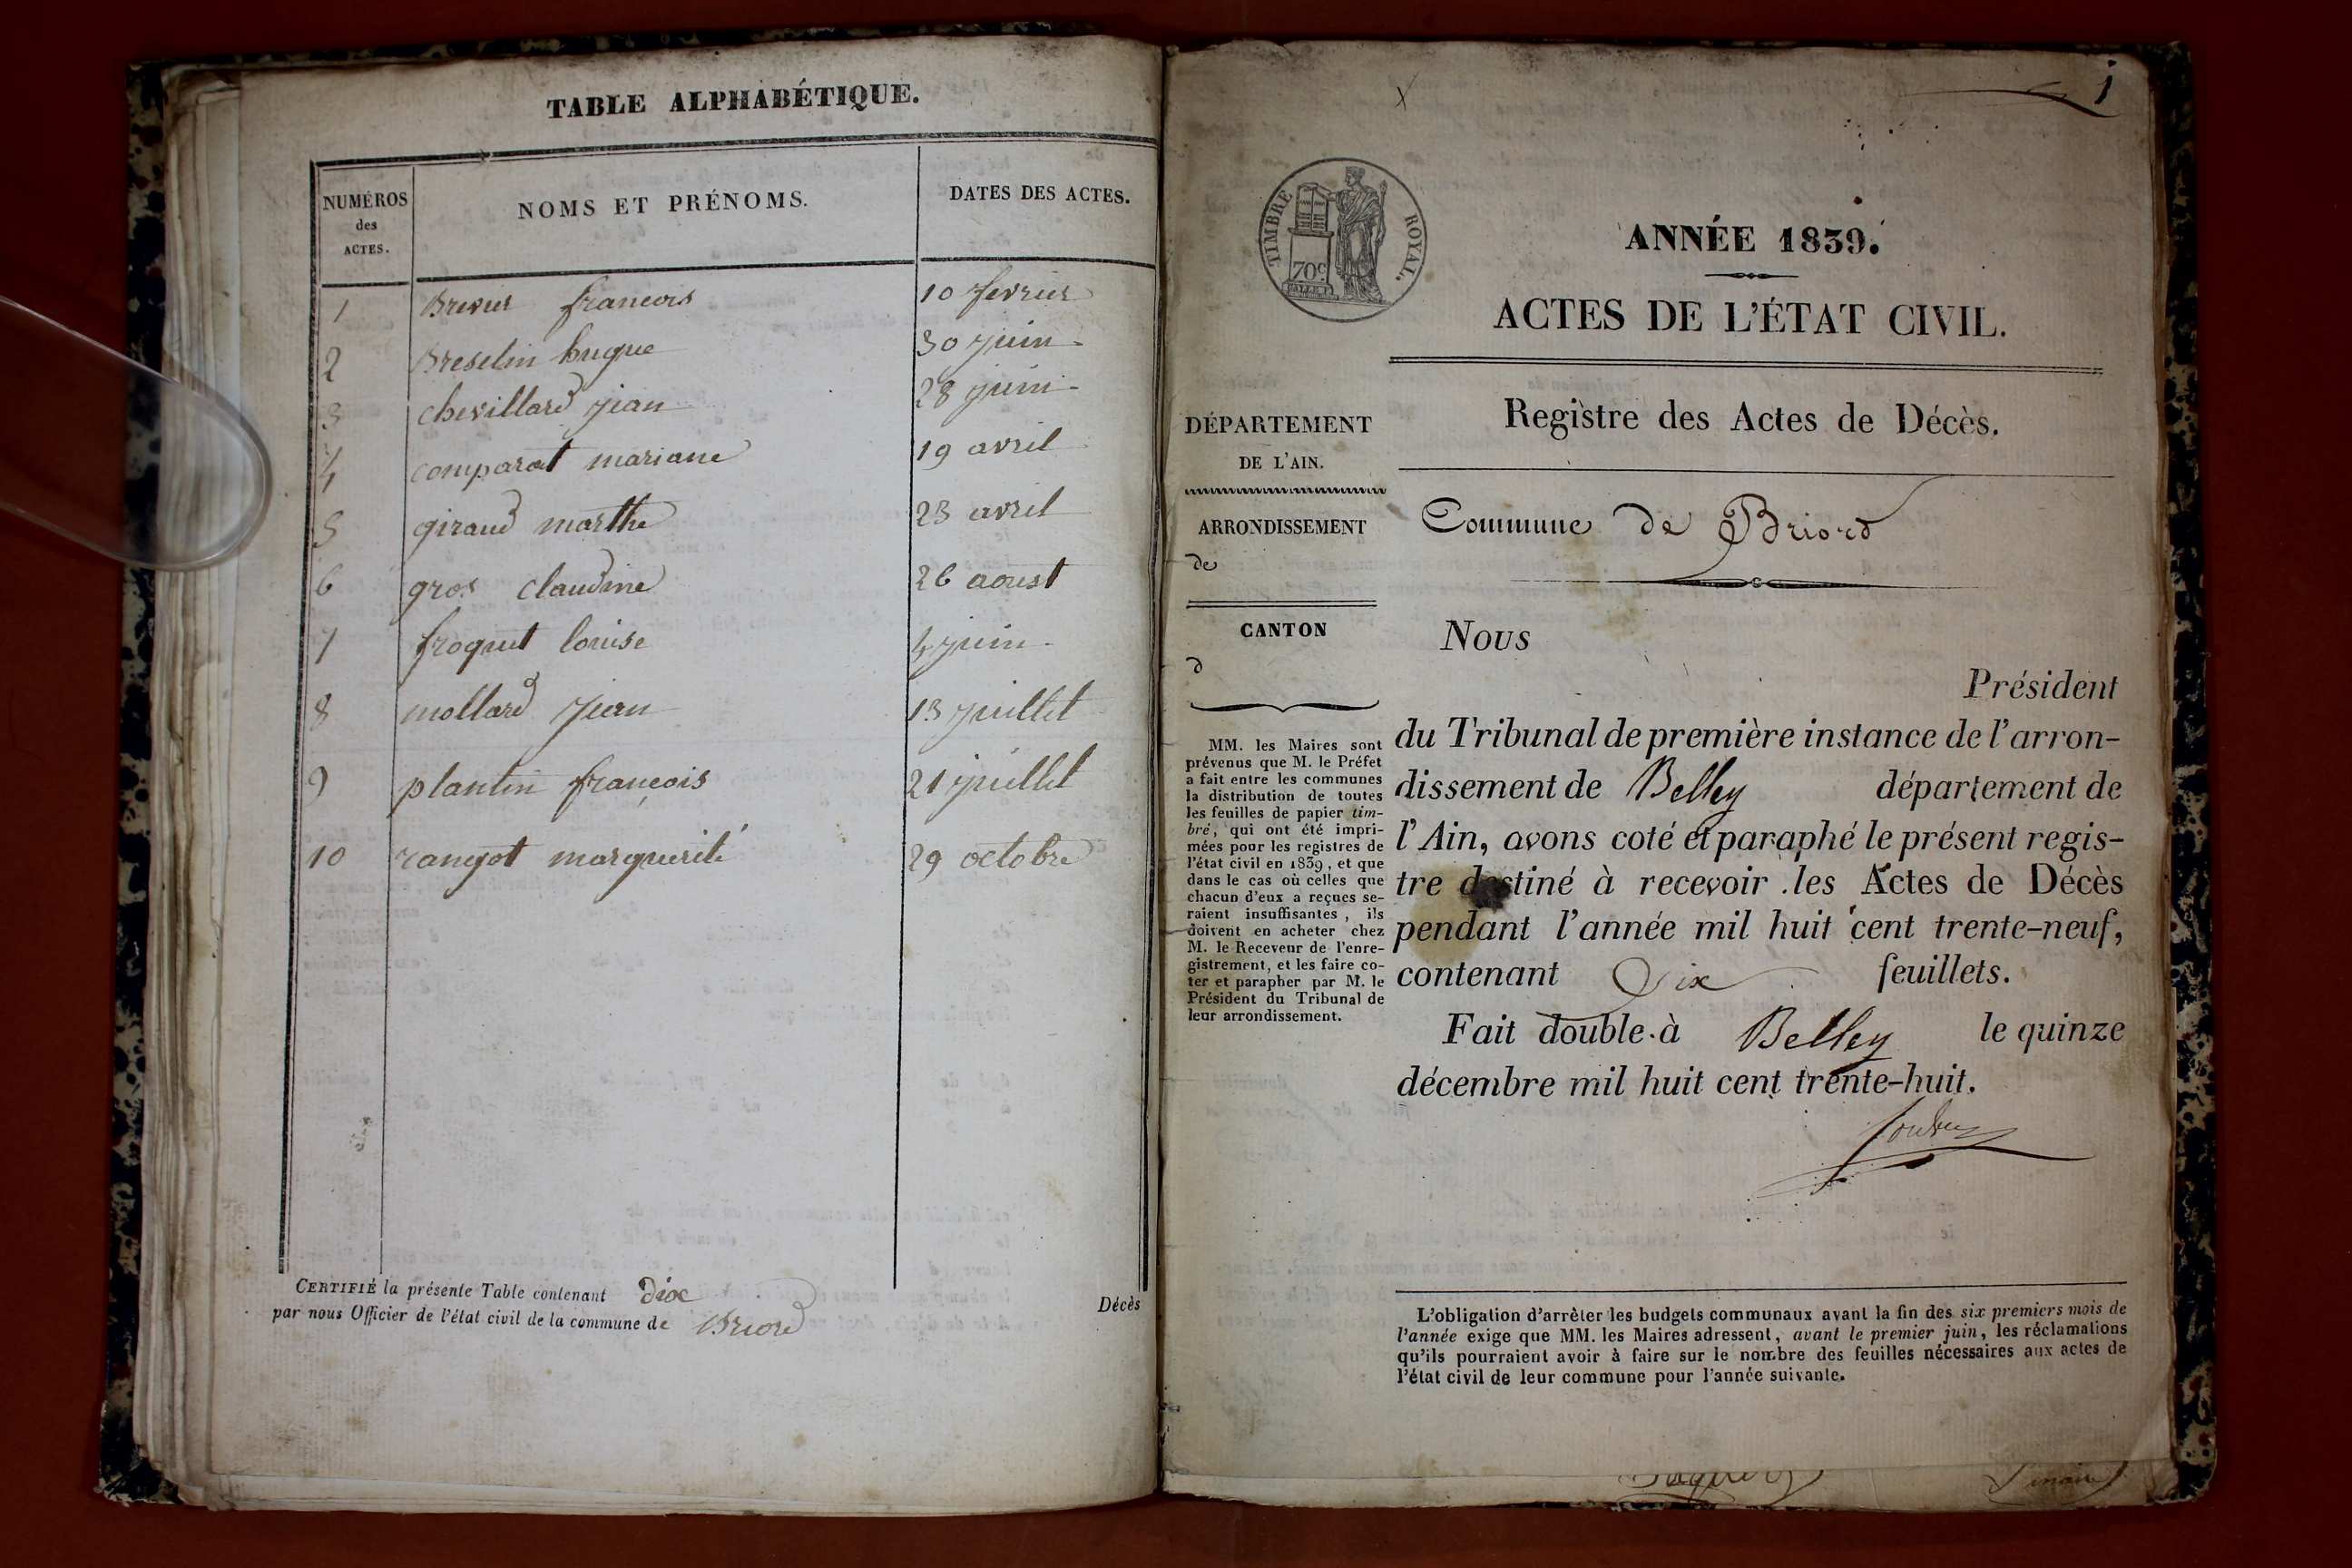 TABLE ALPHABÉTIQUE.
NUMÉROS des ACTES.
NOMS ET PRÉNOMS.
DATES DES ACTES.
1 Brevier francois 10 fevrier
2 Breselin hugue 30 juin
3 chevillard jean 28 juin
4 comparat mariane 19 avril
5 giraud marthe 23 avril
6 gros claudine 26 aoust
7 froquet louise 4 juin
8 mollard jean 13 juillet
9 plantin françois 21 juillet
10 rangot marguerite 29 octobre
CERTIFIÉ la présente Table contenant dix
par nous Officier de l'état civil de la commune de Briord
Décès
1
TIMBRE ROYAL.
70c
ANNÉE 1839.
ACTES DE L'ÉTAT CIVIL.
Registre des Actes de Décès.
DÉPARTEMENT
DE L'AIN.
ARRONDISSEMENT
de
CANTON
d
MM. les Maires sont
prévenus que M. le Préfet
a fait entre les communes
la distribution de toutes
les feuilles de papier tim-
bré, qui ont été impri-
mées pour les registres de
l'état civil en 1839, et que
dans le cas où celles que
chacun d'eux a reçues se-
raient insuffisantes, ils
doivent en acheter chez
M. le Receveur de l'enre-
gistrement, et les faire co-
ter et parapher par M. le
Président du Tribunal de
leur arrondissement.
Commune de Briord
Nous
Président
du Tribunal de première instance de l'arron-
dissement de Belley département de
l'Ain, avons coté et paraphé le présent regis-
tre destiné à recevoir les Actes de Décès
pendant l'année mil huit cent trente-neuf,
contenant Six feuillets.
Fait double à Belley le quinze
décembre mil huit cent trente-huit.
L'obligation d'arrêter les budgets communaux avant la fin des six premiers mois de
l'année exige que MM. les Maires adressent, avant le premier juin, les réclamations
qu'ils pourraient avoir à faire sur le nombre des feuilles nécessaires aux actes de
l'état civil de leur commune pour l'année suivante.